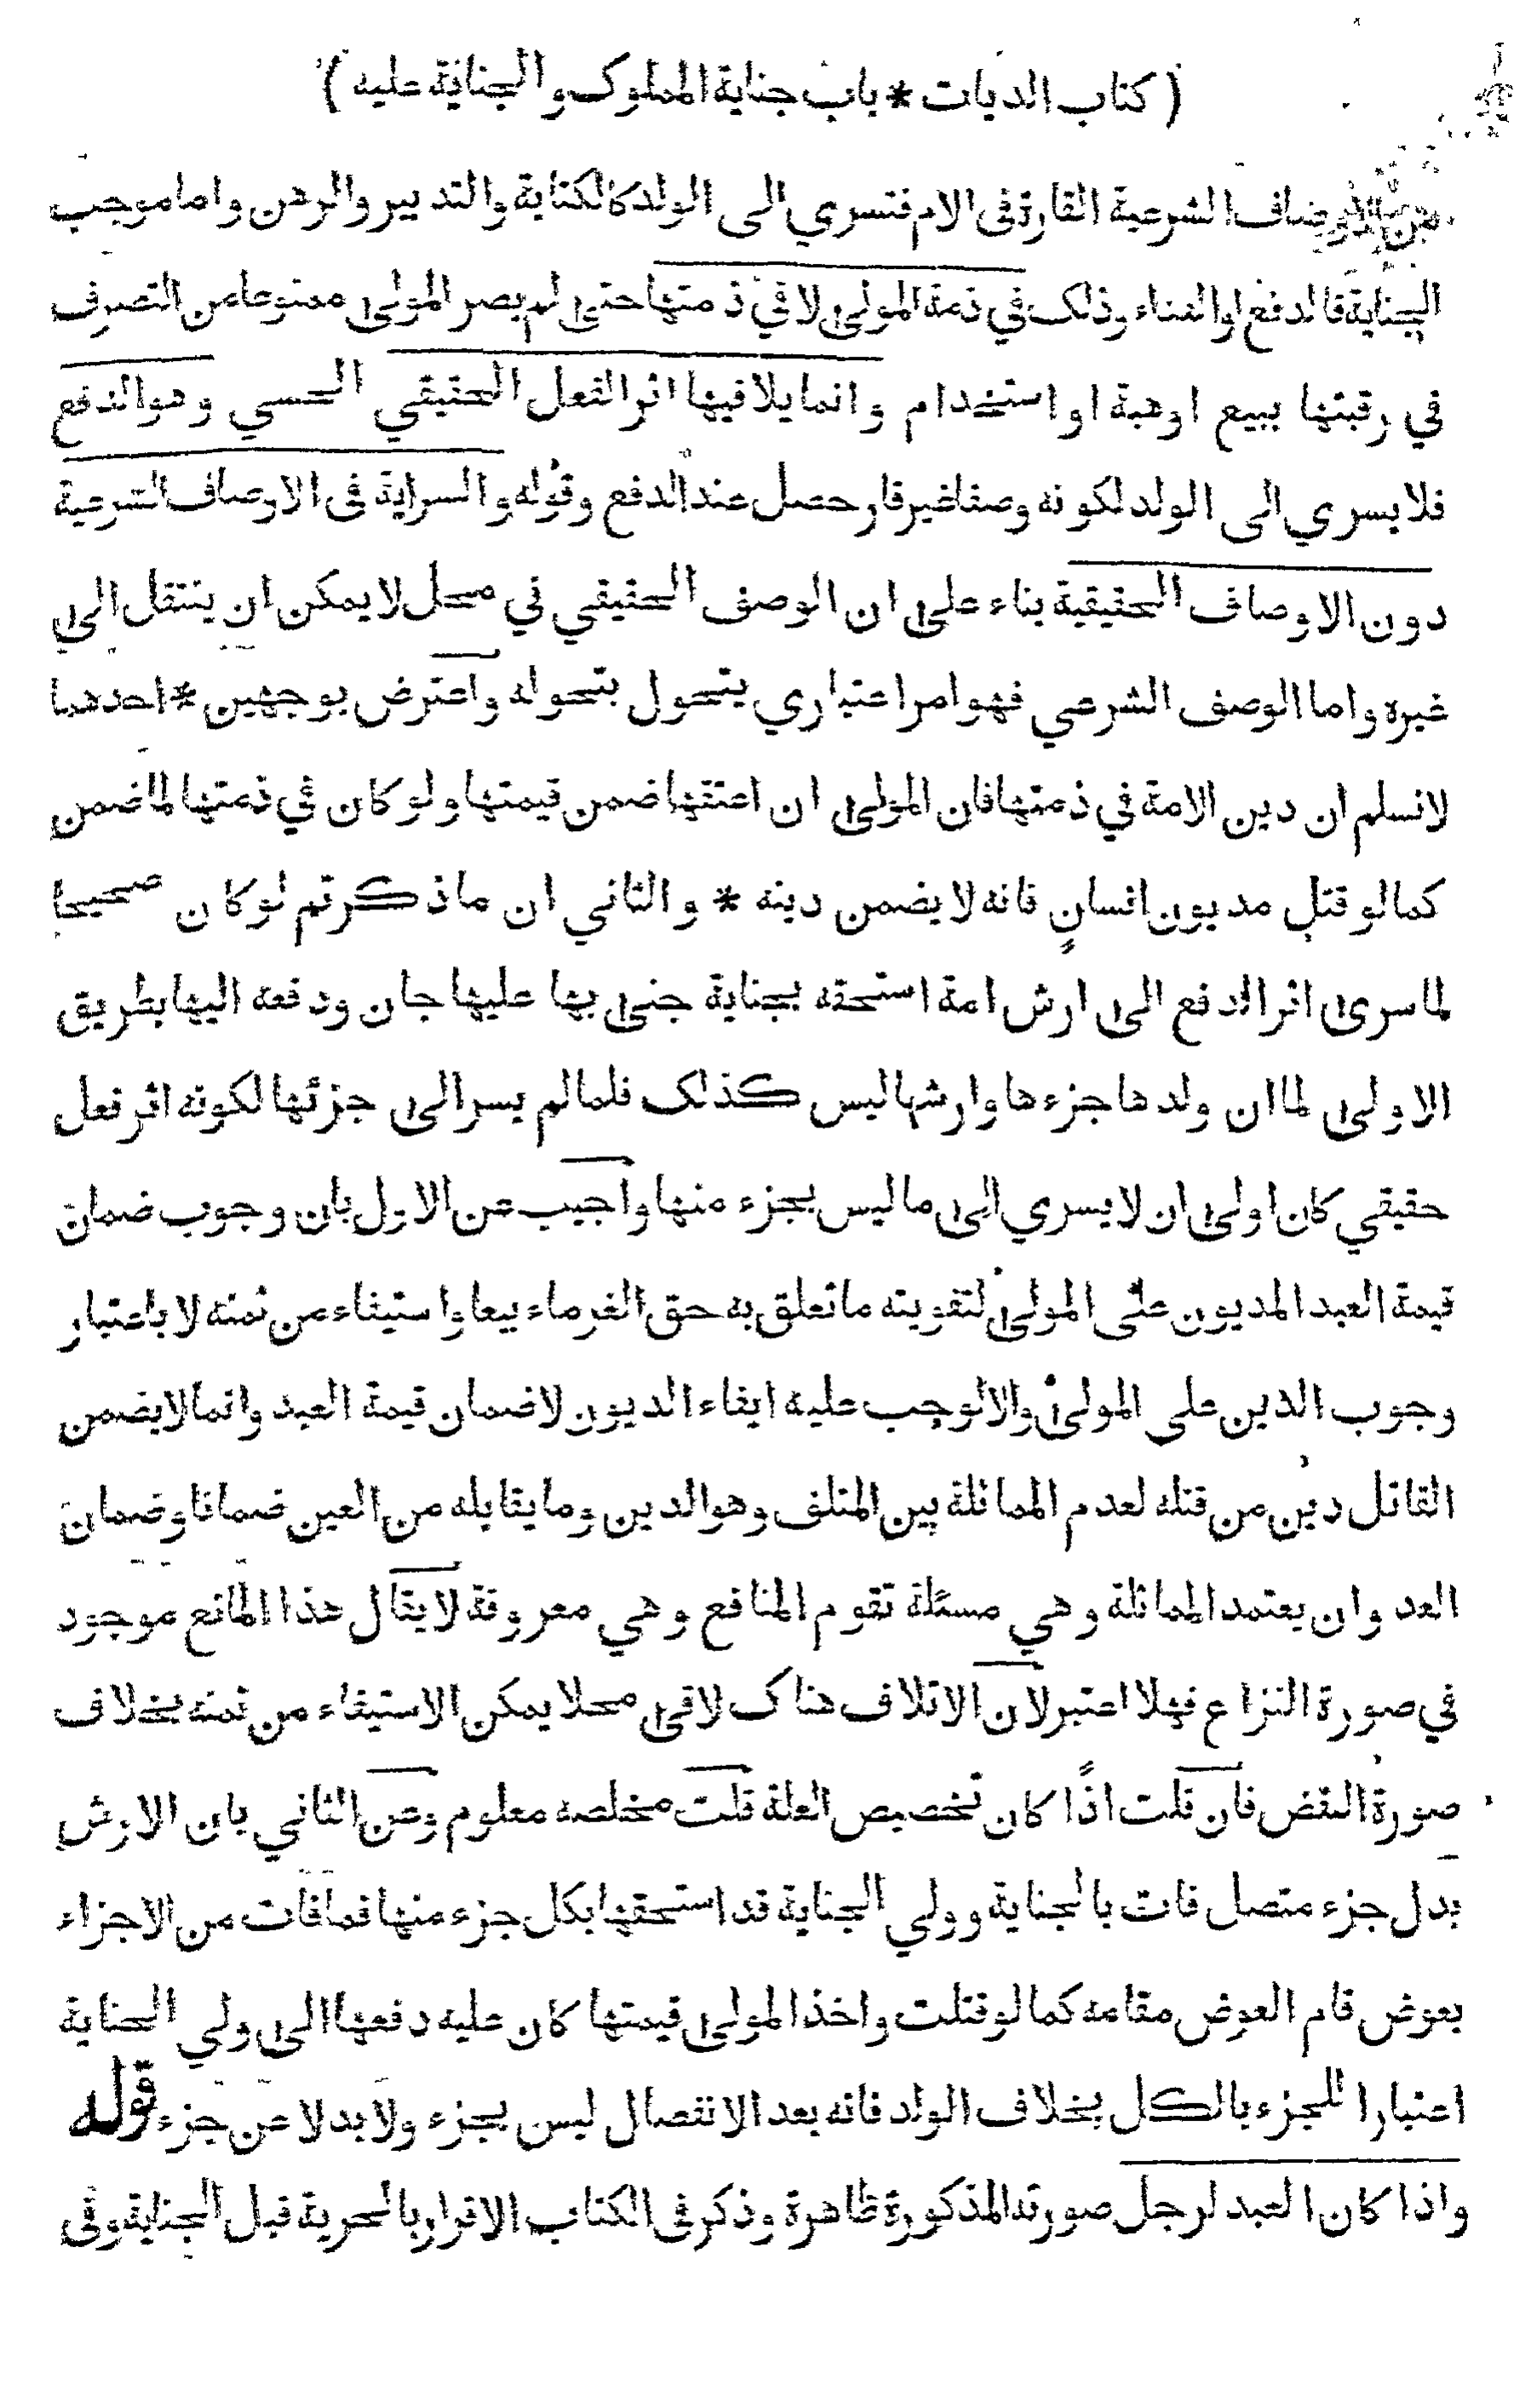 ( كتاب الديات * باب جناية المملوك والجناية عليه )
من الاوصاف الشرعية القارة فى الام فتسري الى الولد كالكتابة والتدبير والرهن واما موجب
الجناية فالدفع او الفداء وذلك في ذمة المولى لا في ذمتها حتى لم يصر المولى ممنوعا من التصرف
في رقبتها ببيع اوهبة او استخدام وانما يلاقيها اثر الفعل الحقيقي الحسي وهو الدفع
فلا يسري الى الولد لكونه وصفا غير قار حصل عند الدفع وقوله والسراية فى الاوصاف الشرعية
دون الاوصاف الحقيقية بناء على ان الوصف الحقيقي في محل لا يمكن ان ينتقل الى
غيره واما الوصف الشرعي فهو امر اعتباري يتحول بتحوله واعترض بوجهين * احدهما
لانسلم ان دين الامة في ذمتها فان المولى ان اعتقها ضمن قيمتها ولو كان في ذمتها لما ضمن
كما لو قتل مديون انسان فانه لا يضمن دينه * والثاني ان ما ذكرتم لو كان صحيحا
لما سرى اثر الدفع الى ارش امة استحقه بجناية جنى بها عليها جان ودفعه اليها بطريق
الاولى لما ان ولدها جزءها وارشها ليس كذلك فلما لم يسر الى جزئها لكونه اثر فعل
حقيقي كان اولى ان لا يسري الى ما ليس بجزء منها واجيب عن الاول بان وجوب ضمان
قيمة العبد المديون على المولى لتفويته ما تعلق به حق الغرماء بيعا واستيفاء من ثمنه لا باعتبار
وجوب الدين على المولى والا لوجب عليه ايفاء الديون لا ضمان قيمة العبد وانما لا يضمن
القاتل دين من قتله لعدم المماثلة بين المتلف وهو الدين وما يقابله من العين ضمانا وضمان
العدوان يعتمد المماثلة وهي مسئلة تقوم المنافع وهي معروفة لا يقال هذا المانع موجود
في صورة النزاع فهلا اعتبر لان الاتلاف هناك لاقى محلا يمكن الاستيفاء من ثمنه بخلاف
صورة النقض فان قلت اذًا كان تخصيص العلة قلت مخلصه معلوم وعن الثاني بان الارش
بدل جزء متصل فات بالجناية وولي الجناية قد استحقها بكل جزء منها فما فات من الاجزاء
بعوض قام العوض مقامه كما لو قتلت واخذ المولى قيمتها كان عليه دفعها الى ولي الجناية
اعتبارا للجزء بالكل بخلاف الولد فانه بعد الانفصال ليس بجزء ولا بدلا عن جزء قوله
واذا كان العبد لرجل صورته المذكورة ظاهرة وذكر فى الكتاب الاقرار بالحرية قبل الجناية وفى